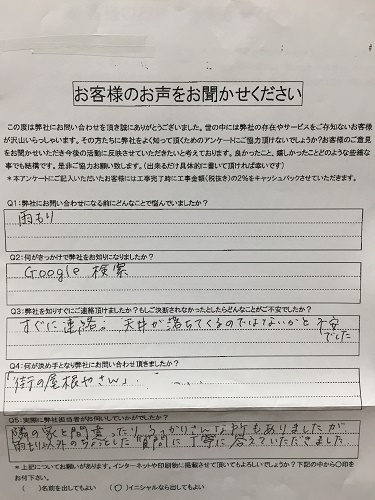 お客様のお声をお聞かせください
この度は弊社にお問い合わせを頂き誠にありがとうございました。世の中には弊社の存在やサービスをご存知ないお客様
が沢山いらっしゃいます。その方たちに弊社をよく知って頂くためのアンケートにご協力頂けないでしょうか?お客様のご意見
をお聞かせいただき今後の活動に反映させていただきたいと考えております。良かったこと、嬉しかったことどのような些細な
事でも結構です。是非ご協力お願い致します。(出来るだけ具体的に書いて頂ければ幸いです)
*本アンケートにご記入いただいたお客様には工事完了時に工事金額(税抜き)の2%をキャッシュバックさせていただきます。
Q1:弊社にお問い合わせになる前にどんなことで悩んでいましたか?
雨もり
Q2:何がきっかけで弊社をお知りになりましたか?
Google 検索
Q3:弊社を知りすぐにご連絡頂けましたか?もしご決断されなかったとしたらどんなことがご不安でしたか?
すぐに連絡。天井が落ちてくるのではないかと不安
でした
Q4:何が決め手となり弊社にお問い合わせ頂きましたか?
「街の屋根やさん」
Q5:実際に弊社担当者がお伺いしていかがでしたか?
隣の家と間違ったり、うっかりさんな所もありましたが
雨もり以外のちょっとした質問に丁寧に答えていただきました
*上記についてお願いがあります。インターネットや印刷物に掲載させて頂いてもよろしいでしょうか?下記の中から〇印を
お付け下さい。
( )名前を出してもよい (〇)イニシャルなら出してもよい